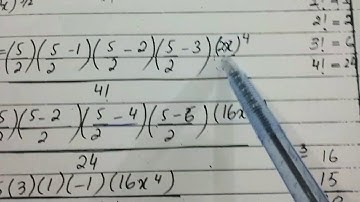 x)^1/2
= (5/2)(5/2 - 1)(5/2 - 2)(5/2 - 3)(2x)^4
4!
(5/2)(5-2/2)(5-4/2)(5-6/2)(16x
24
(3)(1)(-1)(16x^4)
2! = 2
3! = 6
4! = 24
3 16
15